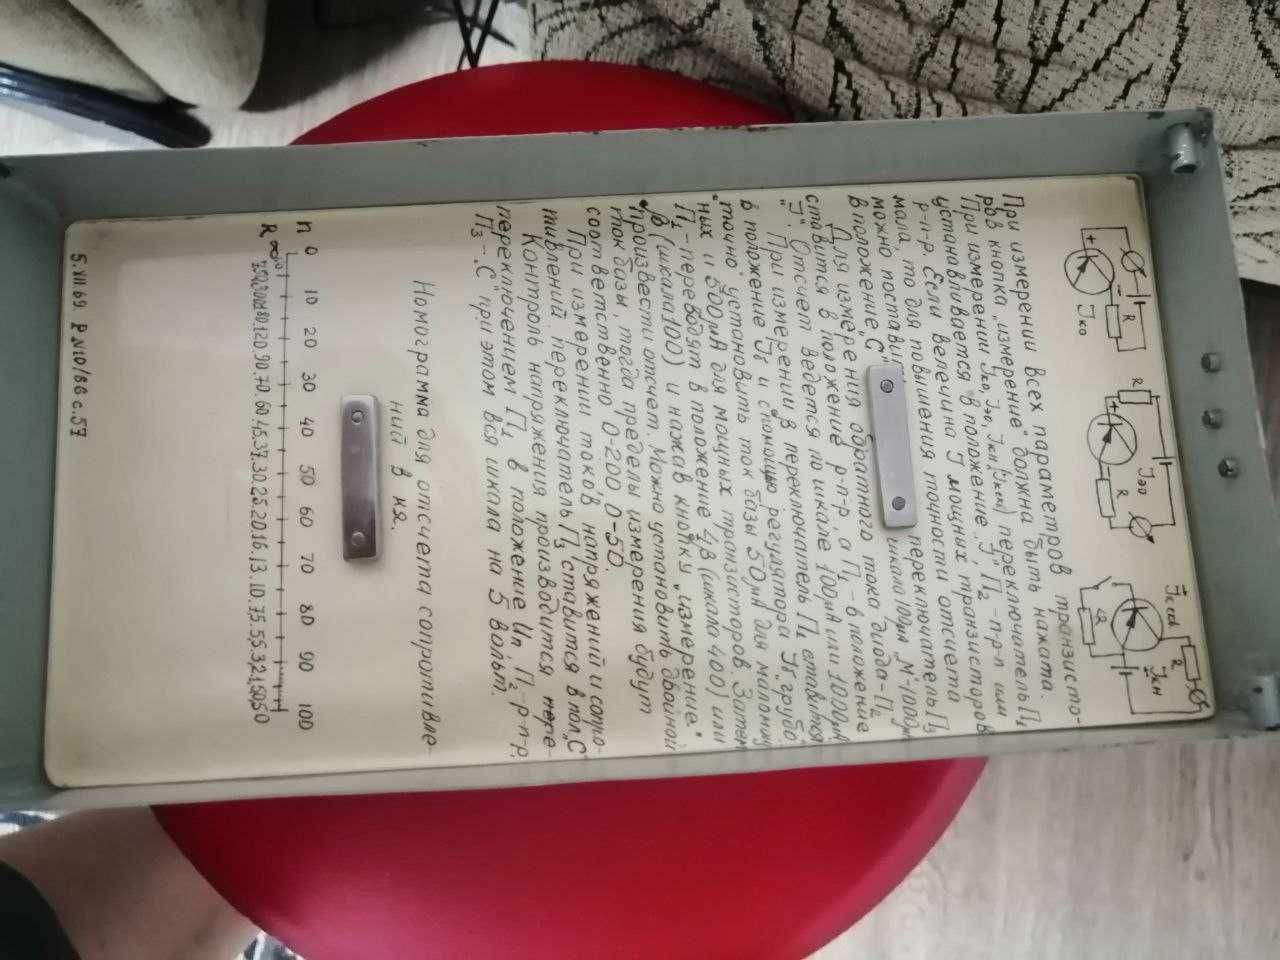 R
Iко
R
Iэо
R
Iк нач
Iкн
R
При измерении всех параметров транзисто-
ров кнопка „измерение" должна быть нажата.
При измерении Iко, Iэо, Iкн, (Iк нач) переключатель П1
устанавливается в положение „I", П2 - п-р-п или
р-п-р. Если величина I мощных транзисторов
мала, то для повышения точности отсчета
можно постави переключатель П3
в положение „С" шкала 100μа, „М"-1000μа
Для измерения обратного тока диода-П2
ставится в положение р-п-р, а П1 - в положение
„I". Отсчет ведется по шкале 100μА или 1000μА
При измерении β переключатель П1 ставится
в положение Iб и с помощью регулятора Iб „грубо",
„точно" установить ток базы 50μА для маломощ
ных и 500μА для мощных транзисторов. Затем
П1 - переводят в положение 4β (шкала 400) или
β (шкала 100) и нажав кнопку „измерение"
произвести отсчет. Можно установить двойной
ток базы, тогда пределы измерения будут
соответственно 0-200, 0-50.
При измерении токов, напряжений и сопро-
тивлений, переключатель П3 ставится в пол. „С"
Контроль напряжения производится пере-
переключением П1 в положение Uп, П2 - р-п-р,
П3 - „С" при этом вся шкала на 5 вольт.
Номограмма для отсчета сопротивле-
ний в
n 0 10 20 30 40 50 60 70 80 90 100
R ∞ 120. 90. 70. 60. 45. 37. 30. 25. 20. 16. 13. 10. 7,5. 5,5. 0
5.VII 69. P №10/66 с.57